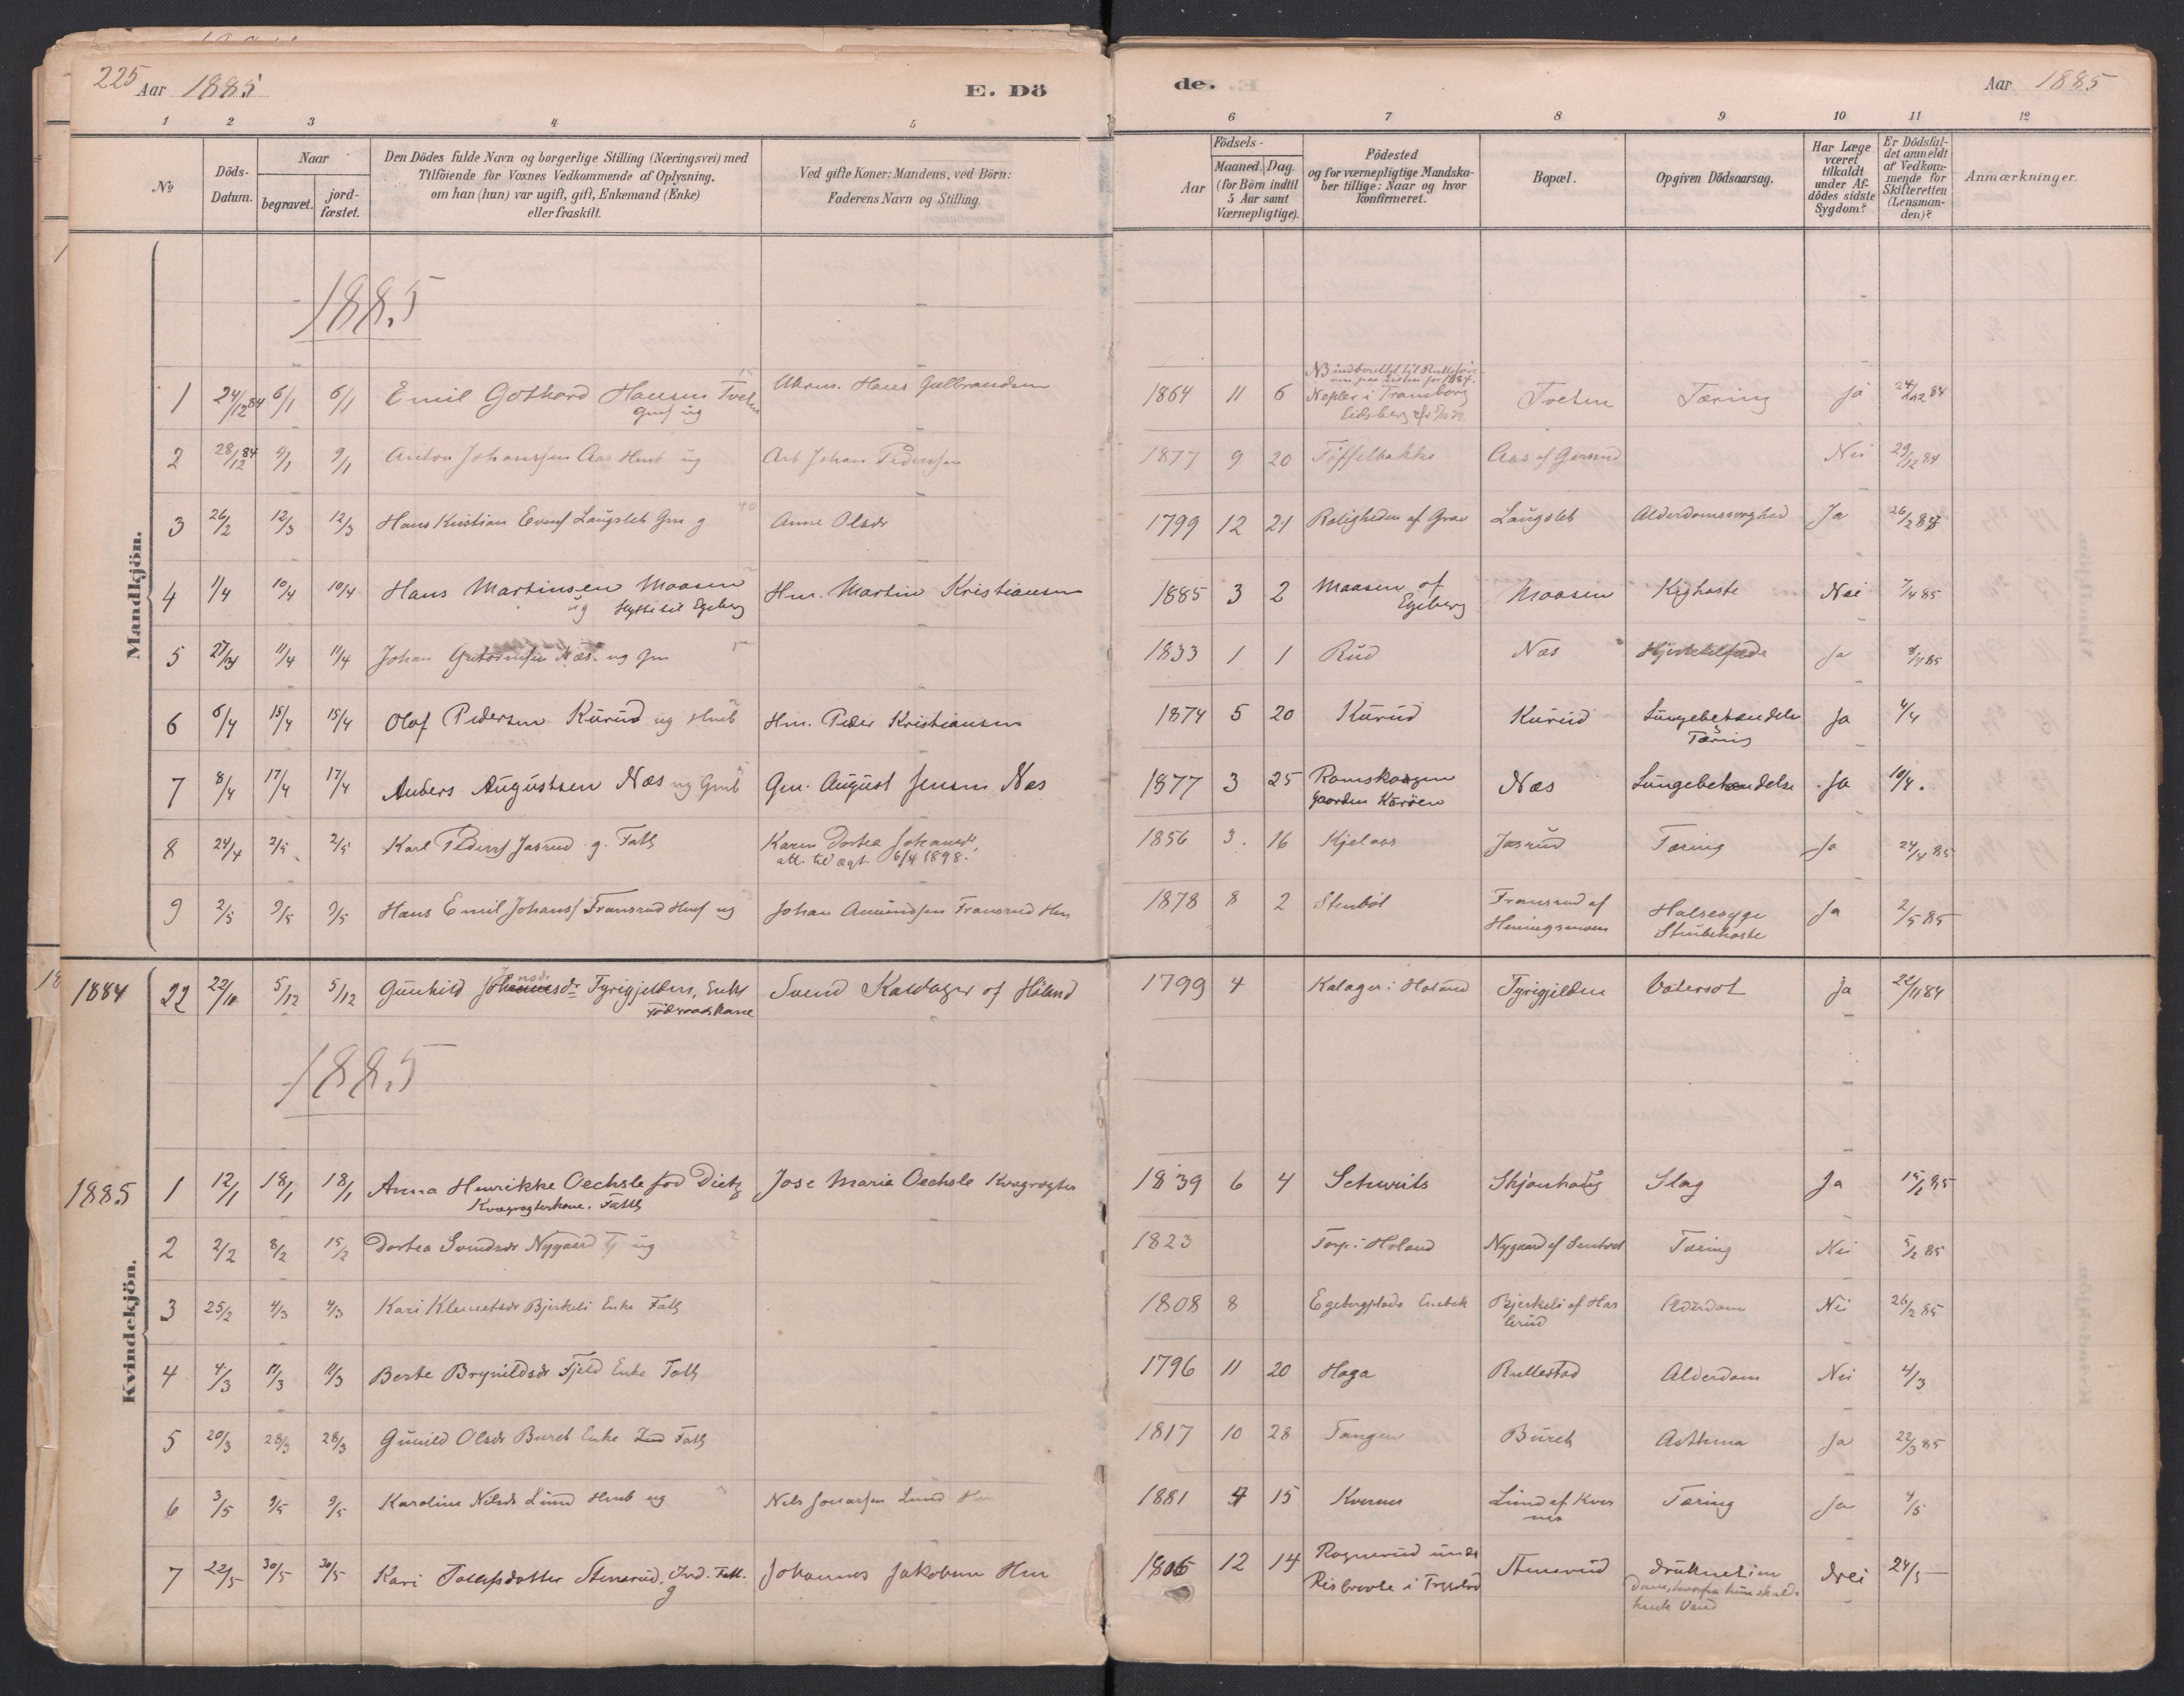 225 Aar 1885 E. Dö de. Aar 1885
1 2 3 4 5 6 7 8 9 10 11 12
No
Döds-Datum.
Naar
begravet. jord-fæstet.
Den Dödes fulde Navn og borgerlige Stilling (Næringsvei) med
Tilföiende for Voxnes Vedkommende af Oplysning,
om han (hun) var ugift, gift, Enkemand (Enke)
eller fraskilt.
Ved gifte Koner: Mandens, ved Börn:
Faderens Navn og Stilling.
Aar
Födsels-
Maaned. Dag.
(for Börn indtil
5 Aar samt
Værnepligtige).
Födested
og for værnepligtige Mandska-
ber tillige: Naar og hvor
konfirmeret.
Bopæl.
Opgiven Dödsaarsag.
Har Læge
været
tilkaldt
under Af-
dödes sidste
Sygdom?
Er Dödsfal-
det anmeldt
af Vedkom-
mende for
Skifteretten
(Lensman-
den)?
Anmærkninger.
Mandkjön.
1885
1 24/12 84 6/1 6/1 Emil Gothard Hansen Tveten Hans Gulbrandsen 1864 11 6 Tveten Tæring ja 24/12 84
ug
Trømborg
Eidsberg
2 28/12 84 9/1 9/1 Anton Johanssen Aas ug Arb Johan Pedersen 1877 9 20 Töffelbakke Aas af Nei 29/12 84
3 26/2 12/3 12/3 Hans Kristian Evens Laugslet Gm g Anne Olsdr 1799 12 21 Roligheden af Grav Laugslet Alderdomssvaghed Ja 26/2 84
4 1/4 10/4 10/4 Hans Martinsen Maasen Hm. Martin Kristiansen 1885 3 2 Maasen af Maasen Kighoste Nei 7/4 85
ug Egeberg Egeberg
5 11/4 11/4 Johan Næs ug Gm 1833 1 1 Rud Næs Ja
6 6/4 15/4 15/4 Olaf Pedersen Kurud ug Hmb Hm. Peder Kristiansen 1874 5 20 Kurud Kurud Lungebetændelse Ja
Tæring
7 8/4 17/4 17/4 Anders Augustsen Næs ug Gmb Gm. August Jensen Næs 1877 3 25 Romskogen Næs Lungebetændelse Ja 10/4.
Gaarden Kåröen
8 24/4 2/5 2/5 Karl Peders Jasrud g. Fatt Karen Dortea Johansd, 1856 3. 16 Kjelaas Jasrud Tæring Ja 24/4 85
att. til ægt. 6/4 1898.
9 2/5 9/5 9/5 Hans Emil Johans Fransrud ug Johan Amundsen Fransrud Hm 1878 8 2 Stenböl Fransrud af Halsesyge Ja 2/5 85
Heningsmoen Strubehoste
Kvindekjön.
1884 22 5/12 5/12 Gunhild Tyrigjelden, Enke Svend Kallager af Höland 1799 4 Kalager i Höland Tyrigjelden Vatersot ja 22/11 84
1885
1885 1 12/1 18/1 18/1 Anna Henrikke Oechsle föd Dietz Jose Maria Oechsle Kvægrögter 1839 6 4 Schweits Skjönhaug Slag Ja 15/1 85
Kvægrögterkone. Fattig
2 2/2 8/2 15/2 Dortea Svendsdr Nygaard ug 1823 Torp i Höland Nygaard af Tæring Nei 5/2 85
3 25/2 4/3 4/3 Kari Klemetsdr Bjerkeli Enke Fatt 1808 8 Egebergplads Enebak Bjerkeli af Has Alderdom Nei 26/2 85
lerud
4 4/3 11/3 11/3 Berte Brynildsdr Fjeld Enke Fatt 1796 11 20 Haga Rullestad Alderdom Nei 4/3
5 20/3 28/3 28/3 Gunild Olsdr Buret Enke Fatt 1817 10 28 Tangen Buret Asthma Ja 22/3 85
6 3/5 9/5 9/5 Karoline Nilsdr Lund Hmb ug Nils Jonassen Lund Hm 1881 4 15 Kvernes Lund af Kver Tæring Ja 4/5
nes
7 22/5 30/5 30/5 Kari Tollefsdatter Stenerud, Ind. Fatt. Johannes Jakobsen Hm 1806 12 14 Rognerud under Stenerud druknet i en Nei 24/5
g i Trygstad Dam, hvorfra hun skulde
hente Vand